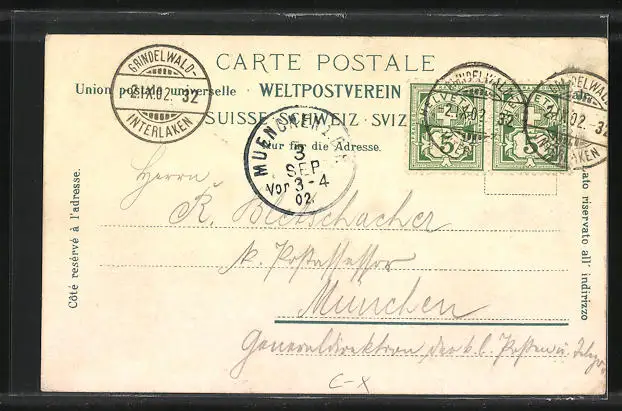 CARTE POSTALE
Union postale universelle WELTPOSTVEREIN
SUISSE SCHWEIZ SVIZ
Nur für die Adresse.
GRINDELWALD-
2.IX.02. 32
INTERLAKEN
MUENCHEN
3
SEP
Vor 3-4
02.
HELVETIA
5
5
2.IX.02. 32
Côté reservé à l'adresse.
Lato riservato all' indirizzo
Herrn
R.
k. Postassessor
München
Generaldirektion der k. b. Posten u.
C-X